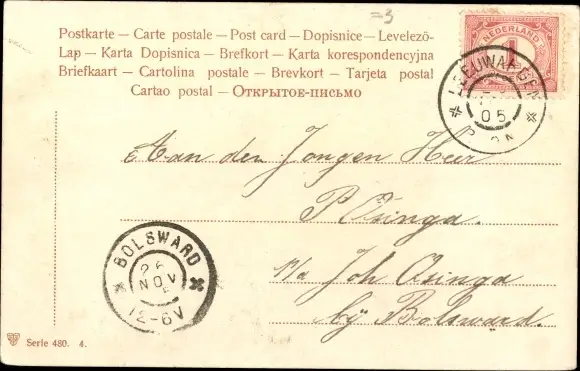 =3
Postkarte — Carte postale — Post card — Dopisnice — Levelező-
Lap — Karta Dopisnica — Brefkort — Karta korespondencyjna
Briefkaart — Cartolina postale — Brevkort — Tarjeta postal
Cartao postal — ОТКРЫТОЕ-ПИСЬМО
NEDERLAND
1
LEEUWARDEN
05
Aan den Jongen Heer
P Osinga.
p/a Joh Osinga
bÿ Bolsward.
BOLSWARD
26
NOV
5
12-6V
Serie 480. 4.